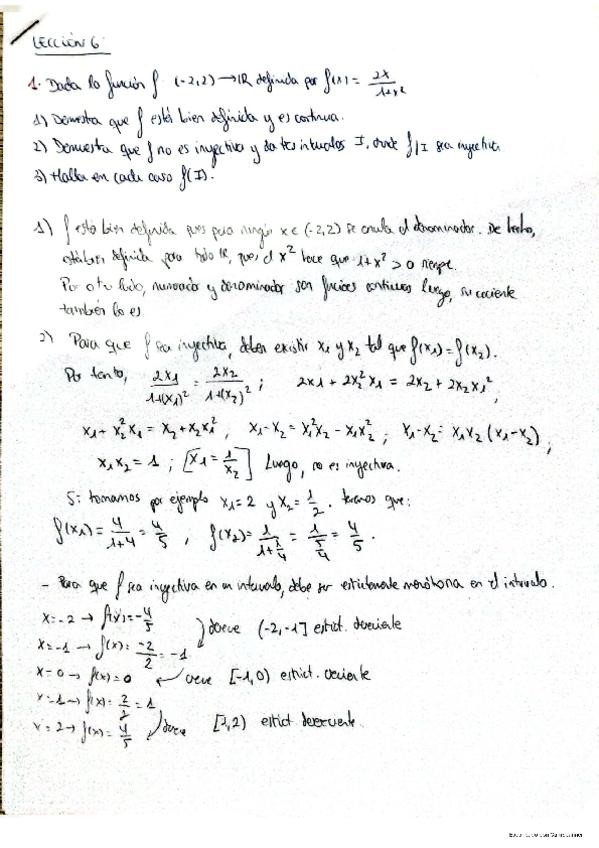 LECCIÓN 6
1. Dada la función f (-2,2) → IR definida por f(x) = 2x / 1+x²
1) Demuestra que f está bien definida y es continua.
2) Demuestra que f no es inyectiva y da tres intervalos I, donde f|I sea inyectiva
3) Halla en cada caso f(I).
1) f está bien definida pues para ningún x ∈ (-2,2) se anula el denominador. De hecho,
está bien definida para todo IR, pues el x² hace que 1+x² > 0 siempre.
Por otro lado, numerador y denominador son funciones continuas luego, su cociente
también lo es.
2) Para que f sea inyectiva, deben existir x1 y x2 tal que f(x1) = f(x2).
Por tanto, 2x1 / 1+(x1)² = 2x2 / 1+(x2)² ; 2x1 + 2x2²x1 = 2x2 + 2x2x1² ,
x1 + x2²x1 = x2 + x2x1² , x1 - x2 = x1²x2 - x1x2² ; x1 - x2 = x1x2 (x1 - x2) ;
x1x2 = 1 ; [x1 = 1/x2] Luego, no es inyectiva.
Si tomamos por ejemplo x1 = 2 y x2 = 1/2 . tenemos que:
f(x1) = 4/1+4 = 4/5 , f(x2) = 1 / 1+1/4 = 1 / 5/4 = 4/5 .
- Para que f sea inyectiva en un intervalo, debe ser estrictamente monótona en el intervalo.
x = -2 → f(x) = -4/5
decrece (-2,-1] estrict. decreciente
x = -1 → f(x) = -2/2 = -1
x = 0 → f(x) = 0 crece [-1,0) estrict. creciente
x = 1 → f(x) = 2/2 = 1
decrece [1,2) estrict. decreciente.
x = 2 → f(x) = 4/5